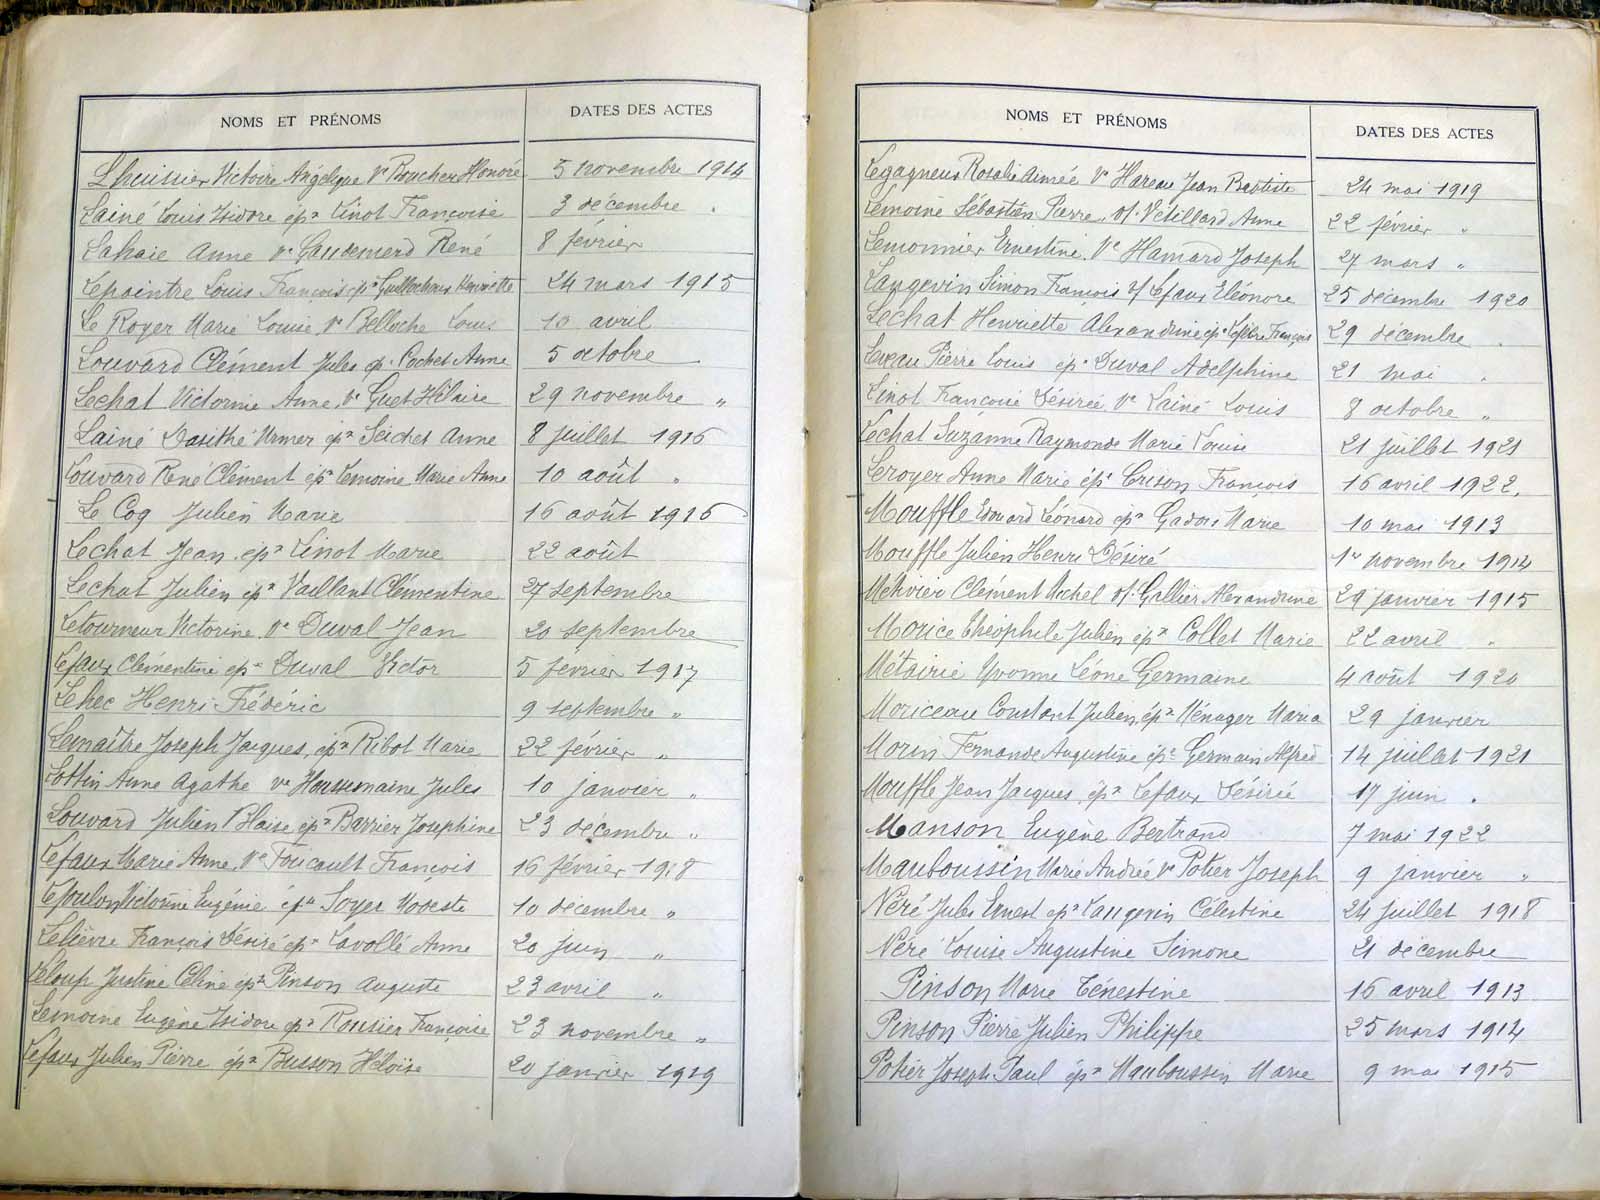 NOMS ET PRÉNOMS DATES DES ACTES
Lhuissier Victoire Angélique Ve Boucher Honoré 5 novembre 1914
Lainé Louis Isidore épx Linot Françoise 3 décembre "
Lahaie Anne Ve René 8 février
Lepointre Louis François épx Henriette 24 mars 1915
Le Royer Marie Louise Ve Belloche Louis 10 avril
Louvard Clément Jules ép. Cochet Anne 5 octobre
Lechat Victorine Anne Ve Guet Hilaire 29 novembre "
Lainé Dosithé Urmer épx Seichet Anne 8 juillet 1916
Louvard René Clément épx Lemoine Marie Anne 10 août "
Le Coq Julien Marie 16 août 1916
Lechat Jean épx Linot Marie 22 août
Lechat Julien épx Vaillant Clémentine 27 septembre
Letourneur Victorine Ve Duval Jean 20 septembre
Lefaux Clémentine épse Duval Victor 5 février 1917
Lehec Henri Frédéric 9 septembre "
Lemaître Joseph Jacques épx Ribot Marie 22 février "
Lottin Anne Agathe Ve Houssemaine Jules 10 janvier "
Louvard Julien Blaise épx Barrier Josephine 23 décembre "
Lefaux Marie Anne Ve Foucault François 16 février 1918
Victorine Eugénie Soyer Modeste 10 décembre "
Lelièvre François Désiré épx Lavollé Anne 20 juin "
Leloup Justine Céline Pinson Auguste 23 avril "
Lemoine Eugène Isidore épx Rousier Françoise 23 novembre "
Lefaux Julien Pierre épx Busson Héloïse 20 janvier 1919
NOMS ET PRÉNOMS DATES DES ACTES
Legagneux Rosalie Aimée Ve Hareau Jean Baptiste 24 mai 1919
Lemoine Sébastien Pierre Vf. Vétillard Anne 22 février "
Lemonnier Ernestine Ve Hamard Joseph 27 mars "
Langevin Simon François Vf Lefaux Eléonore 25 décembre 1920
Lechat Henriette Alexandrine épse Lefebvre François 29 décembre "
Leveau Pierre Louis épx Duval Adelphine 21 mai "
Linot Françoise Désirée Ve Lainé Louis 8 octobre "
Lechat Suzanne Raymonde Marie Louise 21 juillet 1921
Leroyer Anne Marie épse Crison François 16 avril 1922
Mouffle Edouard Léonard épx Marie 10 mai 1913
Mouffle Julien Henri Désiré 1er novembre 1914
Métivier Clément Michel Vf. Gallier Alexandrine 29 janvier 1915
Morice Théophile Julien épx Collet Marie 22 avril "
Métairie Yvonne Léone Germaine 4 août 1920
Moriceau Constant Julien épx Ménager Maria 29 janvier
Morin Fernande Augustine épse Germain Alfred 14 juillet 1921
Mouffle Jean Jacques épx Lefaux Désirée 17 juin "
Manson Eugène Bertrand 7 mai 1922
Mauboussin Marie Andrée Ve Potier Joseph 9 janvier "
Néré Jules Ernest épx Langevin Célestine 24 juillet 1918
Néré Louise Augustine Simone 21 décembre
Pinson Marie Ténestine 16 avril 1913
Pinson Pierre Julien Philippe 25 mars 1914
Potier Joseph Paul épx Mauboussin Marie 9 mai 1915